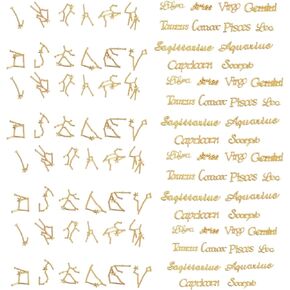 Libra Aries Virgo Gemini
Taurus Cancer Pisces Leo
Sagittarius Aquarius
Capricorn Scorpio
Libra Aries Virgo Gemini
Taurus Cancer Pisces Leo
Sagittarius Aquarius
Capricorn Scorpio
Libra Aries Virgo Gemini
Taurus Cancer Pisces Leo
Sagittarius Aquarius
Capricorn Scorpio
Libra Aries Virgo Gemini
Taurus Cancer Pisces Leo
Sagittarius Aquarius
Capricorn Scorpio